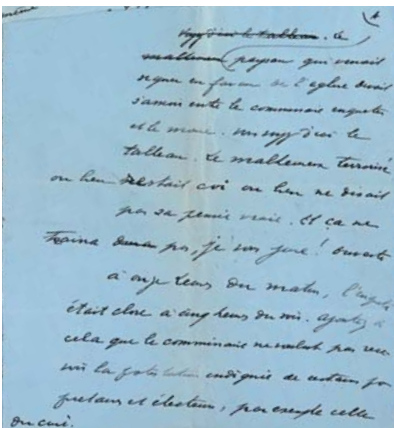 même
4
voyez d'ici le tableau. Le
malheureux paysan qui venait
signer en faveur de l'église devait
s'amener entre le commissaire enquêteur
et le maire. Vous voyez d'ici le
tableau. Le malheureux terrorisé
ou bien restait coi ou bien ne disait
pas sa pensée vraie. Et ça ne
traina pas, je vous jure! ouverte
à onze heures du matin, l'enquête
était close à cinq heures du soir. ajoutez à
cela que le commissaire ne voulut pas rece-
voir la protestation indignée de certains
et électeurs, par exemple celle
du curé.